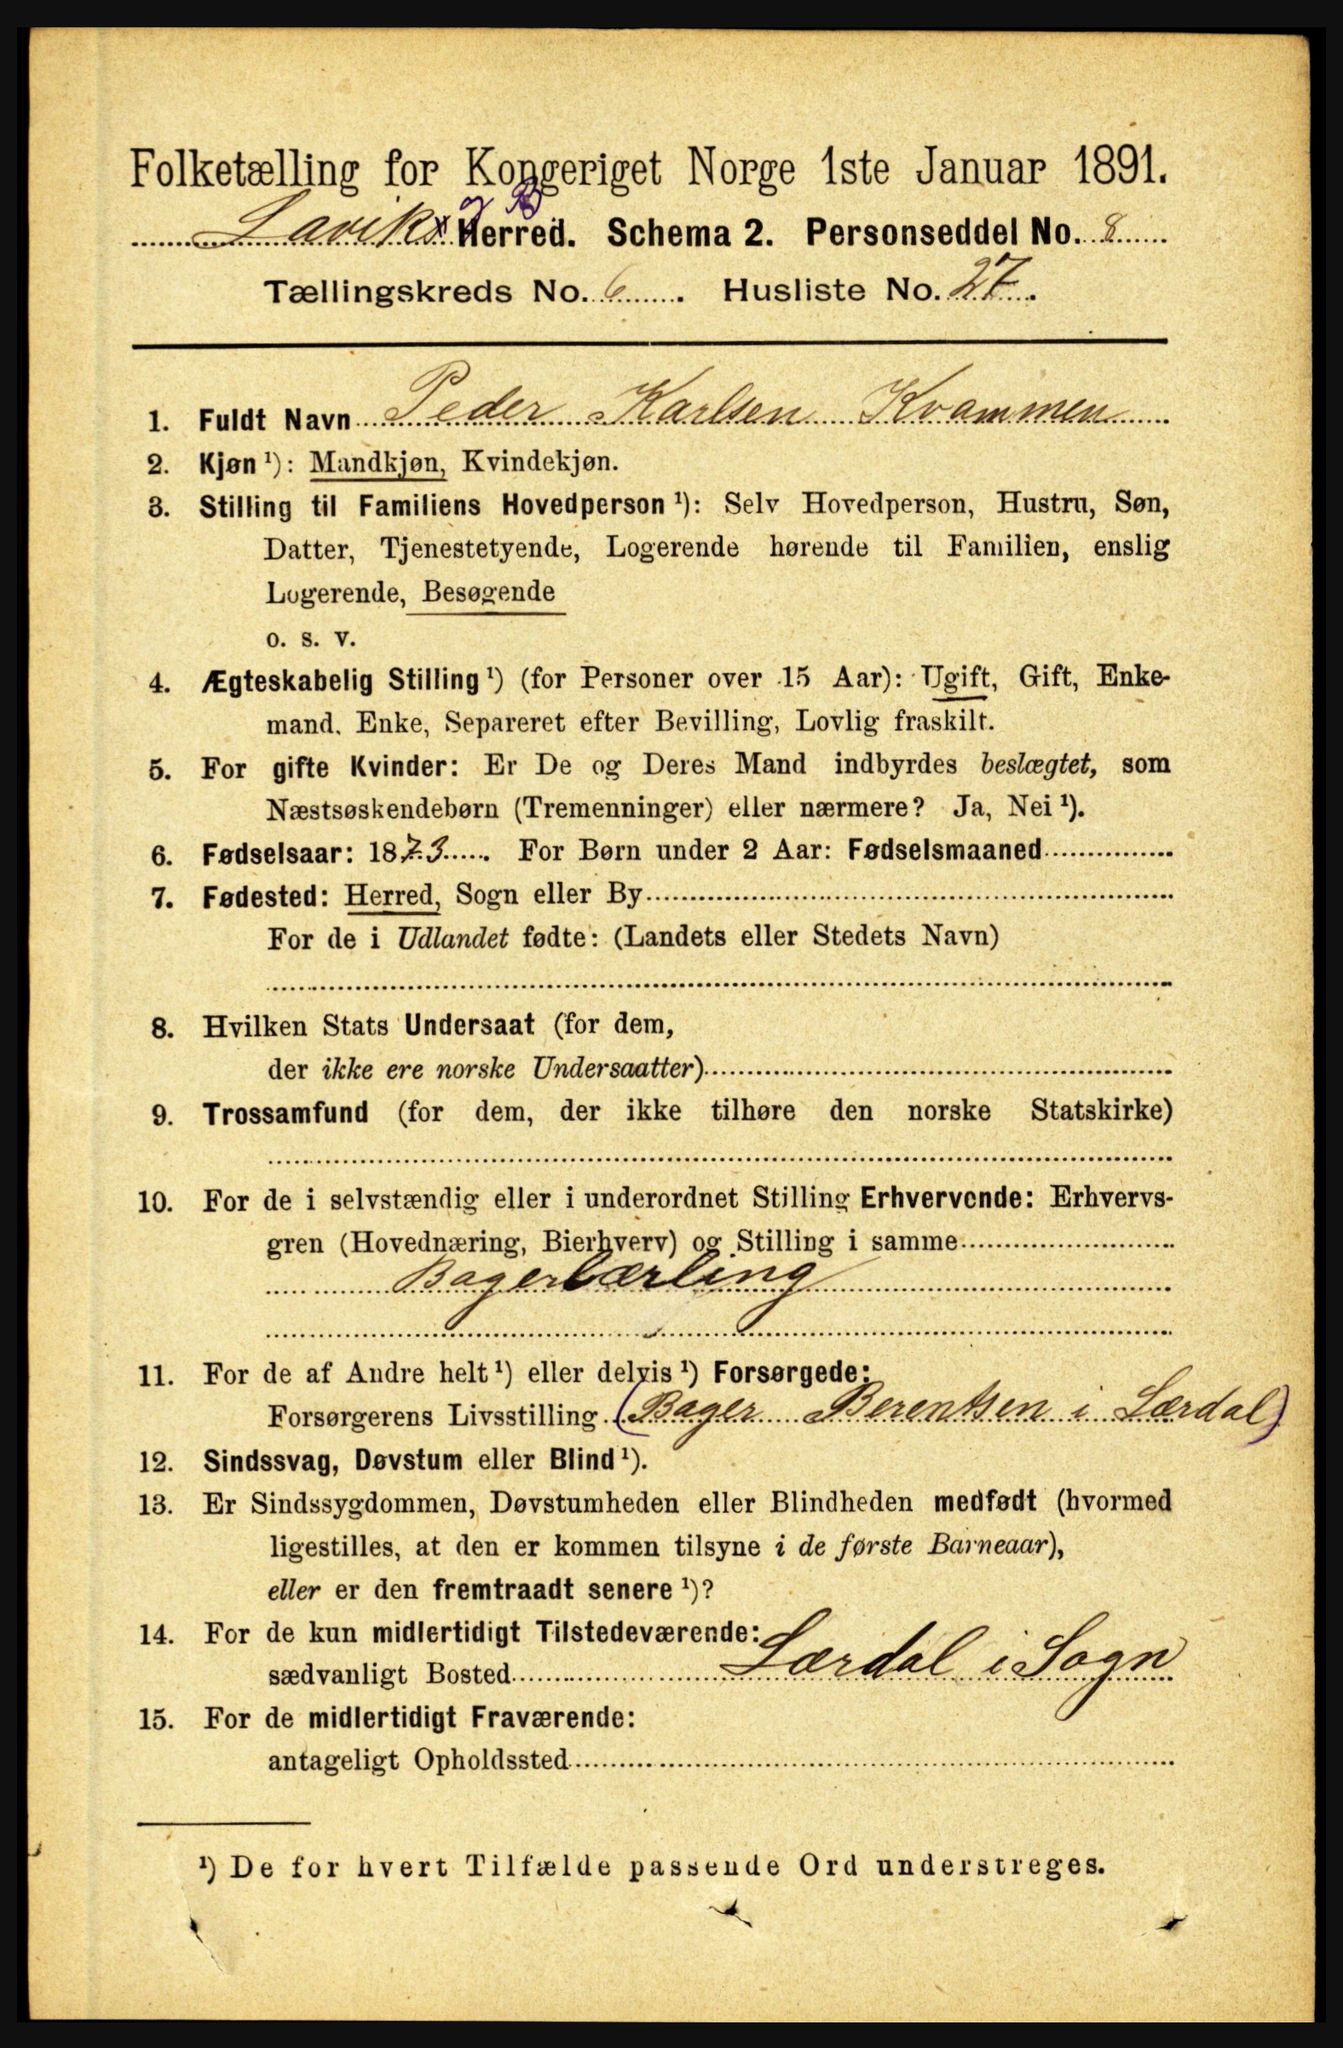 Folketælling for Kongeriget Norge 1ste Januar 1891.
og B
Laviks Herred. Schema 2. Personseddel No. 8
Tællingskreds No. 6. Husliste No. 27.
1. Fuldt Navn Peder Karlsen Kvammen
2. Kjøn ¹): Mandkjøn, Kvindekjøn.
3. Stilling til Familiens Hovedperson ¹): Selv Hovedperson, Hustru, Søn,
Datter, Tjenestetyende, Logerende hørende til Familien, enslig
Logerende, Besøgende
o. s. v.
4. Ægteskabelig Stilling ¹) (for Personer over 15 Aar): Ugift, Gift, Enke-
mand, Enke, Separeret efter Bevilling, Lovlig fraskilt.
5. For gifte Kvinder: Er De og Deres Mand indbyrdes beslægtet, som
Næstsøskendebørn (Tremenninger) eller nærmere? Ja, Nei ¹).
6. Fødselsaar: 1873. For Børn under 2 Aar: Fødselsmaaned
7. Fødested: Herred, Sogn eller By
For de i Udlandet fødte: (Landets eller Stedets Navn)
8. Hvilken Stats Undersaat (for dem,
der ikke ere norske Undersaatter)
9. Trossamfund (for dem, der ikke tilhøre den norske Statskirke)
10. For de i selvstændig eller i underordnet Stilling Erhvervende: Erhvervs-
gren (Hovednæring, Bierhverv) og Stilling i samme
Bagerlærling
11. For de af Andre helt ¹) eller delvis ¹) Forsørgede:
Forsørgerens Livsstilling (Bager Berentsen i Lærdal)
12. Sindssvag, Døvstum eller Blind ¹).
13. Er Sindssygdommen, Døvstumheden eller Blindheden medfødt (hvormed
ligestilles, at den er kommen tilsyne i de første Barneaar),
eller er den fremtraadt senere ¹)?
14. For de kun midlertidigt Tilstedeværende:
sædvanligt Bosted Lærdal i Sogn
15. For de midlertidigt Fraværende:
antageligt Opholdssted
¹) De for hvert Tilfælde passende Ord understreges.